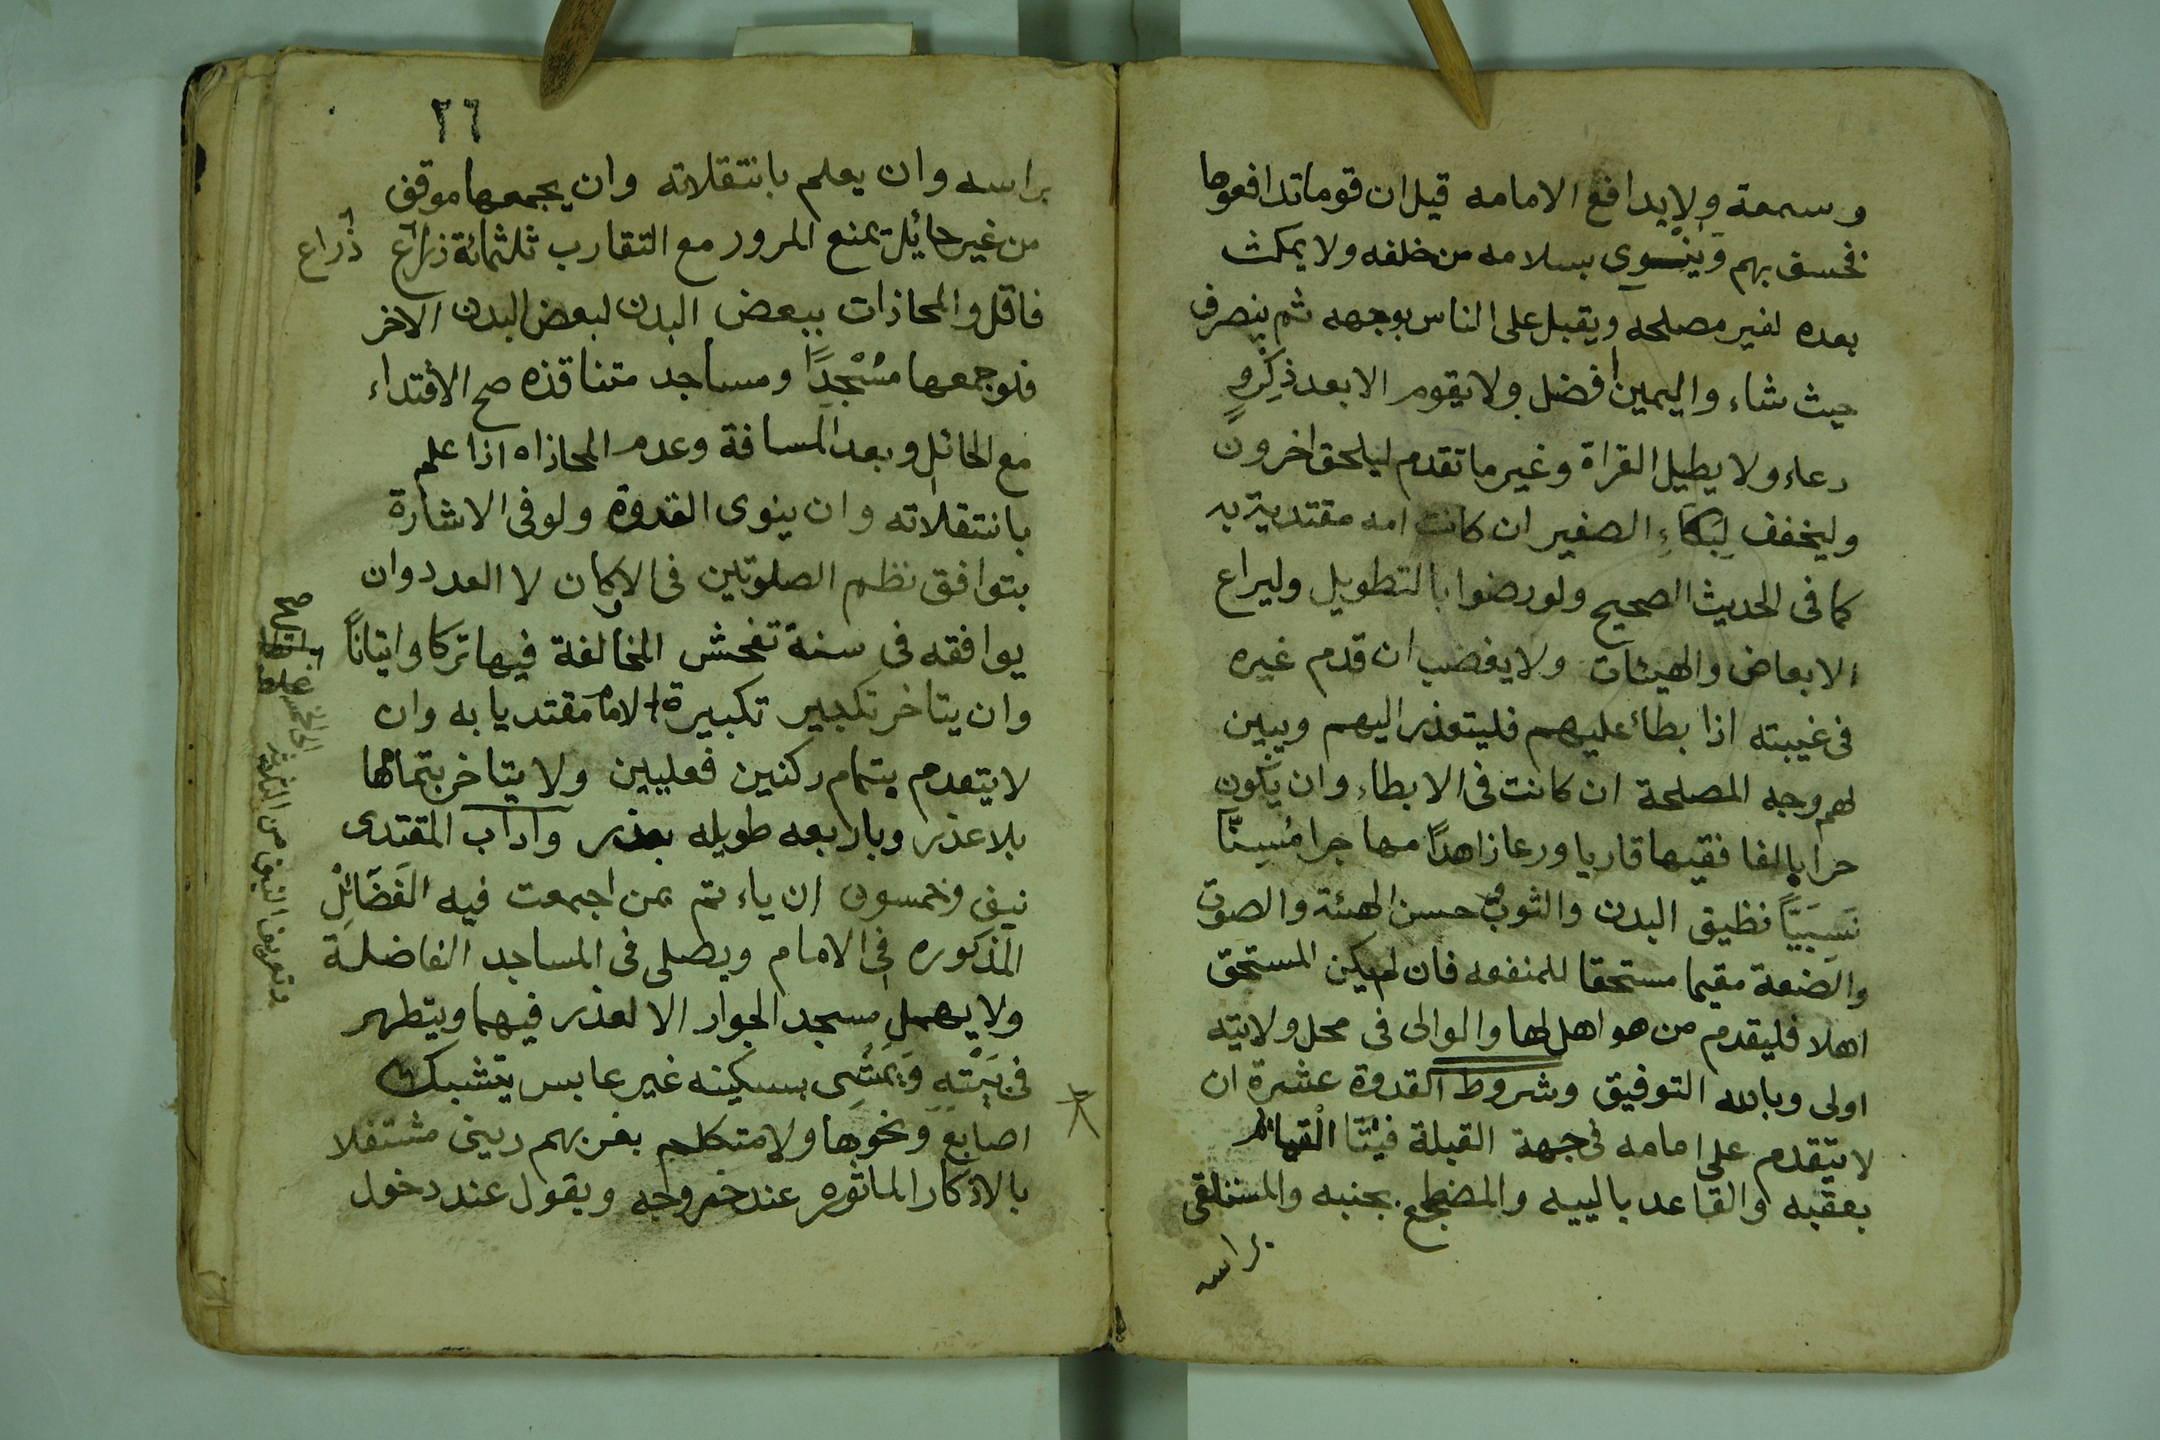 وسمعة ولا يدافع الامامه قيل ان قوما تدافعوها
فخسف بهم وينوى بسلامه من خلفه ولا يمكث
بعده لغير مصلحه ويقبل على الناس بوجهه ثم ينصرف
حيث شاء واليمين افضل ولا يقوم الا بعد ذِكْروٍ
دعاء ولا يطيل القراة وغير ما تقدم ليلحق اخرون
وليخفف لِبُكَاءِ الصغير ان كانت امه مقتدية به
كما فى الحديث الصحيح ولو رضوا بالتطويل وليراع
الابعاض والهيئات ولا يغضب ان قدم غيره
فى غيبته اذا بطأ عليهم فليتعذر اليهم ويبين
لهم وجه المصلحة ان كانت فى الابطاء وان يكون
حرا بالغا فقيها قاريا ورعا زاهدًا مهاجرا مُسِنًّا
نَسِيَبًا نظيق البدن والثوب حسن الهيئة والصوت
والضعة مقيما مستحقا للمنفعه فان لم يكن المستحق
اهلا فليقدم من هو اهل لها والوالى فى محل ولايته
اولى وبالله التوفيق وشروط القدوة عشرة ان
لا يتقدم على امامه فى جهة القبلة فيتا القيام
بعقبه والقاعد بالييه والمضطجع بجنبه والمستلقى
براسه
٢٦
براسه وان يعلم بانتقلاته وان يجمعها موقف
من غير حائل يمنع المرور مع التقارب ثلثمائة ذراع
ذراع
فاقل والمحاذات ببعض البدن لبعض البدن الاخر
فلو جمعها مسْجدًا ومساجد متناقذه صح الأقتداء
مع الحائل وبعد المسافة وعدم المحاذاه اذا علم
بانتقلاته وان ينوى القدوة ولو فى الاشارة
بتوافق نظم الصلوتين فى الاركان لا العدد وان
يوافقه فى سنة تفحش المخالفة فيها تركا واتيانًا
وان يتاخر تكبير تكبيرة الامام مقتديا به وان
لا يتعدم بتمام ركنين فعليين ولا يتاخر بتمامها
بلا عذر وباربعه طويله بعذر واداب المقتدى
نيف وخمسون ان ياء تم بمن اجمعت فيه الفَضَائلِ
المذكوره فى الامام ويصلى فى المساجد الفاضلة
ولا يهمل مسجد الجوار الا لعذر فيهما ويتطهر
فى بَيْتهِ وَيَمشِى بسكينه غير عابس يتشبك
اصابع ونحوها ولا متكلم بغر بهم دينى مشتغلا
بالاذكار الماثوره عند خروجه ويقول عند دخول
صح